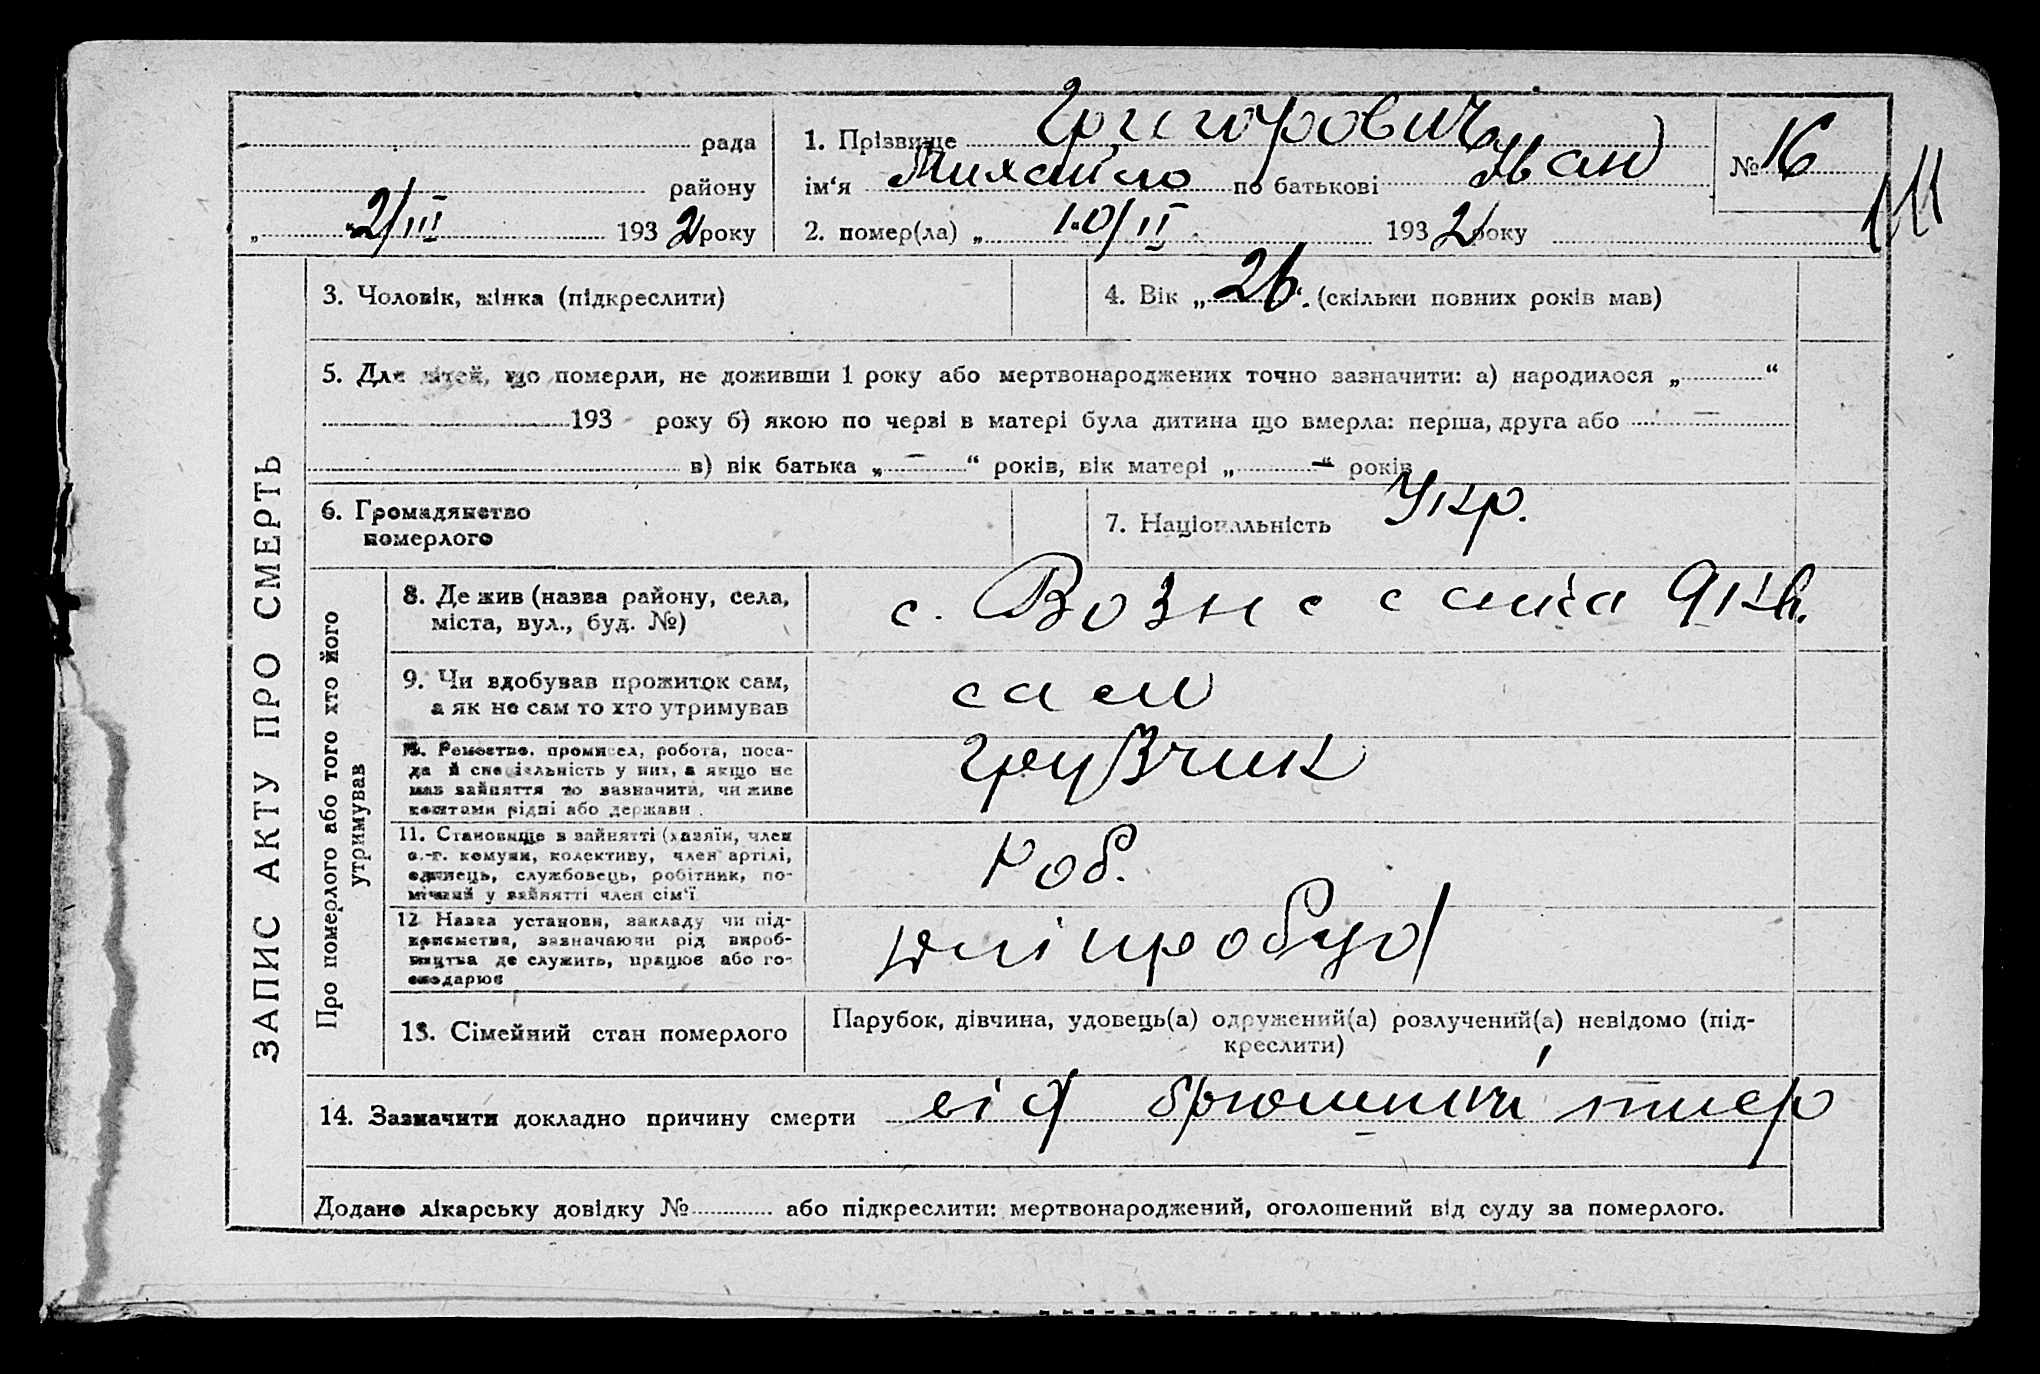 рада
району
„ 2/III 1932 року
1. Прізвище Григорович
ім'я Михайло по батькові Іван
2. помер(ла) „ 10/II 1932 року
№ 16
ЗАПИС АКТУ ПРО СМЕРТЬ
3. Чоловік, жінка (підкреслити)
4. Вік „ 26 “. (скільки повних років мав)
5. Для дітей, що померли, не доживши 1 року або мертвонароджених точно зазначити: а) народилося „ “
193 року б) якою по черзі в матері була дитина що вмерла: перша, друга або —
в) вік батька „ — “ років, вік матері „ — “ років
6. Громадянство
померлого
7. Національність Укр.
Про померлого або того хто його
утримував
8. Де жив (назва району, села,
міста, вул., буд. №)
с. Вознесенка
9. Чи вдобував прожиток сам,
а як не сам то хто утримував
сам
10. Ремество, промисел, робота, поса-
да й спеціяльність у них, а якщо не
мав зайняття то зазначити, чи живе
коштами рідні або держави.
грузчик
11. Становище в зайнятті (хазяїн, член
с.-г. комуни, колективу, член артілі,
одинець, службовець, робітник, по-
мічний у зайнятті член сім'ї
роб.
12 Назва установи, закладу чи під-
приємства, зазначаючи рід вироб-
ництва де служить, працює або го-
сподарює
Дніпробуд
13. Сімейний стан померлого
Парубок, дівчина, удовець(а) одружений(а) розлучений(а) невідомо (під-
креслити)
14. Зазначити докладно причину смерти від брюшний тиф
Додано лікарську довідку № або підкреслити: мертвонароджений, оголошений від суду за померлого.